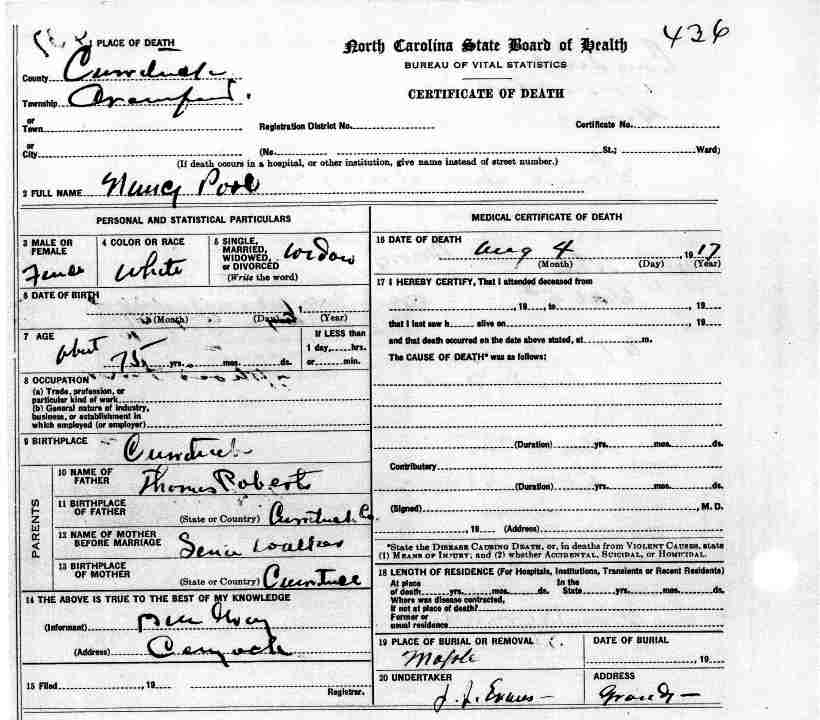 436
1 PLACE OF DEATH
North Carolina State Board of Health
BUREAU OF VITAL STATISTICS
CERTIFICATE OF DEATH
County Currituck
Township Crawford
or
Town Registration District No. Certificate No.
or
City (No. St.; Ward)
(If death occurs in a hospital, or other institution, give name instead of street number.)
2 FULL NAME Nancy Pool
PERSONAL AND STATISTICAL PARTICULARS
3 MALE OR FEMALE Female
4 COLOR OR RACE White
5 SINGLE, MARRIED, WIDOWED, OR DIVORCED (Write the word) Widow
6 DATE OF BIRTH
(Month) (Day) 1 (Year)
7 AGE
About 75 yrs. mos. ds.
If LESS than
1 day, hrs.
or min.
8 OCCUPATION
(a) Trade, profession, or
particular kind of work
(b) General nature of industry,
business, or establishment in
which employed (or employer)
9 BIRTHPLACE Currituck
PARENTS
10 NAME OF FATHER Thomas Roberts
11 BIRTHPLACE OF FATHER
(State or Country) Currituck Co.
12 NAME OF MOTHER BEFORE MARRIAGE Walker
13 BIRTHPLACE OF MOTHER
(State or Country) Currituck
14 THE ABOVE IS TRUE TO THE BEST OF MY KNOWLEDGE
(Informant)
(Address)
15 Filed , 19
Registrar.
MEDICAL CERTIFICATE OF DEATH
16 DATE OF DEATH Aug 4 , 1917
(Month) (Day) (Year)
17 I HEREBY CERTIFY, That I attended deceased from
, 19 , to , 19
that I last saw h alive on , 19
and that death occurred on the date above stated, at m.
The CAUSE OF DEATH* was as follows:
(Duration) yrs. mos. ds.
Contributory
(Duration) yrs. mos. ds.
(Signed) , M. D.
, 19 (Address)
*State the DISEASE CAUSING DEATH, or, in deaths from VIOLENT CAUSES, state
(1) MEANS OF INJURY; and (2) whether ACCIDENTAL, SUICIDAL, or HOMICIDAL.
18 LENGTH OF RESIDENCE (For Hospitals, Institutions, Transients or Recent Residents)
At place In the
of death yrs. mos. ds. State yrs. mos. ds.
Where was disease contracted,
if not at place of death?
Former or
usual residence
19 PLACE OF BURIAL OR REMOVAL
DATE OF BURIAL
, 19
20 UNDERTAKER
J. J. Evans
ADDRESS
Grandy